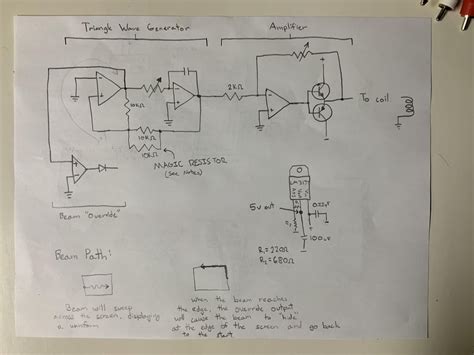 Triangle Wave Generator
Amplifier
2KΩ
10KΩ
10KΩ
10KΩ
MAGIC RESISTOR
(See Notes)
To coil
Beam "Override"
LM317
5V out
0.22uF
100uV
R₁=220Ω
R₂=680Ω
Beam Path:
Beam will sweep
across the screen, displaying
a waveform
When the beam reaches
the edge, the override output
will cause the beam to "hide"
at the edge of the screen and go back
to the start